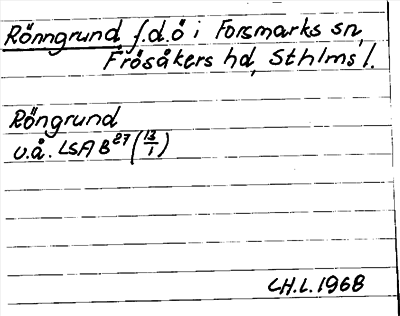 Rönngrund f.d.ö i Forsmarks sn,
Frösåkers hd, Sthlms l.
Röngrund
u.å. LSA B²⁷ (13/1)
C.H.L. 1968